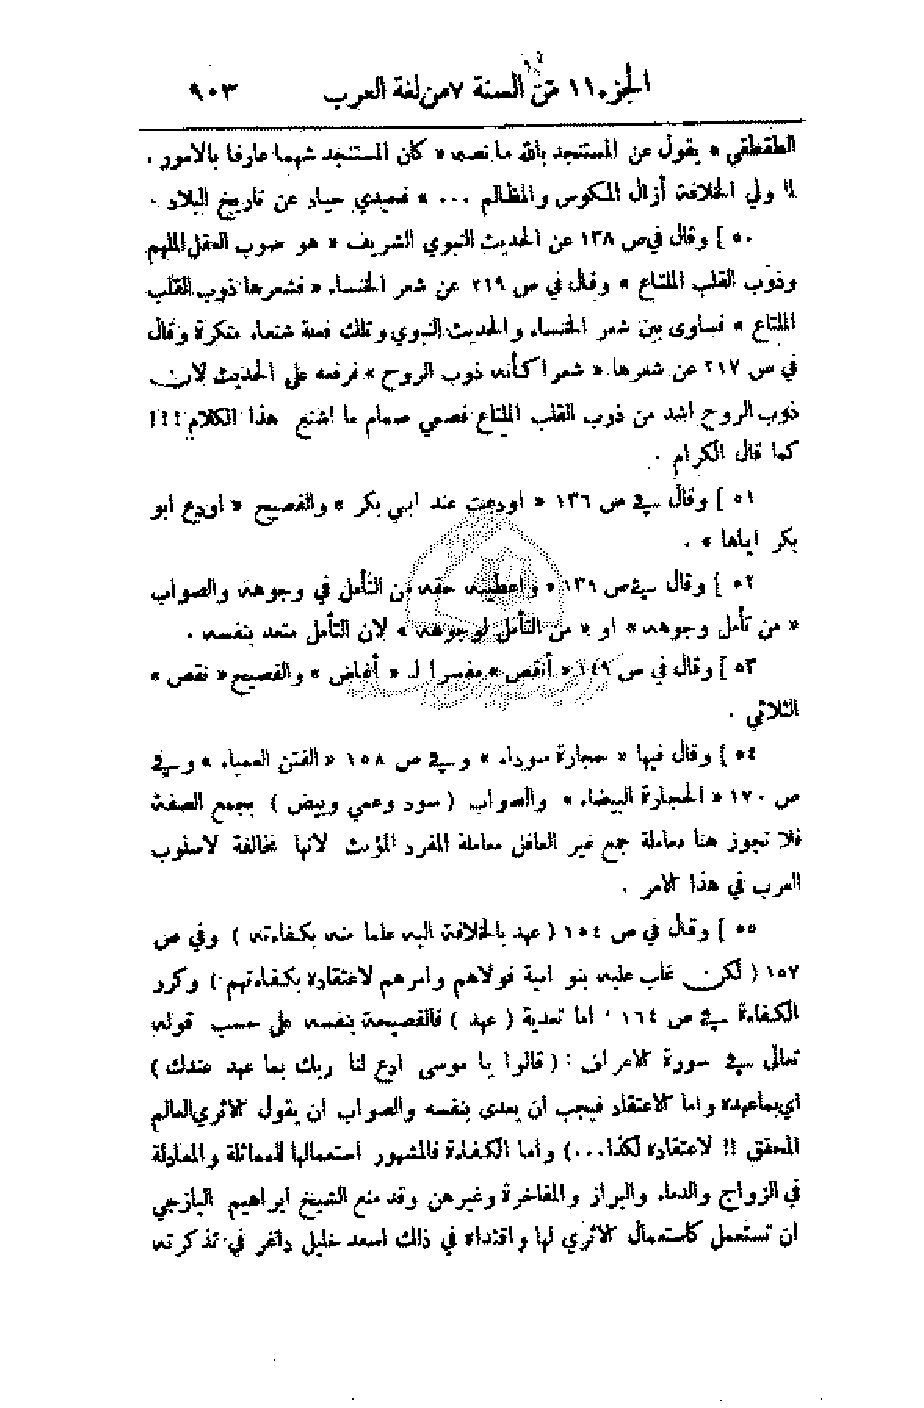 الجزء ١١ من السنة ٧ من لغة العرب ٩٠٣
الطقطقي » يقول عن المستنجد بالله ما نصه « كان المستنجد شهما عارفا بالامور .
لما ولي الخلافة أزال المكوس والمظالم ... » فسيدي حياد عن تاريخ البلاد .
٥٠ ] وقال في ص ١٣٨ عن الحديث النبوي الشريف « هو صوب العقل الملهم
وذوب القلب الملتاع » وقال في ص ٢١٩ عن شعر الخنساء « فشعرها ذوب القلب
الملتاع » فساوى بين شعر الخنساء والحديث النبوي وتلك فعلة شنعاء منكرة وقال
في ص ٢١٧ عن شعرها « شعرا كأنه ذوب الروح » فرفعه على الحديث لان
ذوب الروح اشد من ذوب القلب الملتاع فصمي صمام ما اشنع هذا الكلام !!!
كما قال الكرام .
٥١ ] وقال في ص ١٣٦ « اودعت عند ابي بكر » والفصيح « اودع ابو
بكر اياها » .
٥٢ ] وقال في ص ١٣٩ « واعطيته حقه من التأمل في وجوهه والصواب
« من تأمل وجوهه » او « من التأمل لوجوهه » لان التأمل متعد بنفسه .
٥٣ ] وقال في ص ١٤٩ « أنقص » مفسرا لـ « أغاض » والفصيح « نقص »
الثلاثي .
٥٤ ] وقال فيها « حجارة سوداء » وفي ص ١٥٨ « الفتن العمياء » وفي
ص ١٧٠ « الحجارة البيضاء » والصواب ( سود وعمي وبيض ) بجمع الصفة
فلا تجوز هنا معاملة جمع غير العاقل معاملة المفرد المؤنث لانها مخالفة لاسلوب
العرب في هذا الامر .
٥٥ ] وقال في ص ١٥٤ ( عهد بالخلافة اليه علما منه بكفاءته ) وفي ص
١٥٧ ( لكن غاب عليه بنو امية فولاهم وامرهم لاعتقاده بكفاءتهم ) وكرر
الكفاءة في ص ١٦٤ ، اما تعدية ( عهد ) فالفصيحة بنفسه على حسب قوله
تعالى في سورة الاعراف : ( قالوا يا موسى ادع لنا ربك بما عهد عندك )
اي بما عهده واما الاعتقاد فيجب ان يعدى بنفسه والصواب ان يقول الاثري العالم
المحقق !! لاعتقاده لكذا...) واما الكفاءة فالمشهور استعمالها للمماثلة والمعادلة
في الزواج والدماء والبراز والمفاخرة وغيرهن وقد منع الشيخ ابراهيم اليازجي
ان تستعمل كاستعمال الاثري لها واقتداه في ذلك اسعد خليل داغر في تذكرته